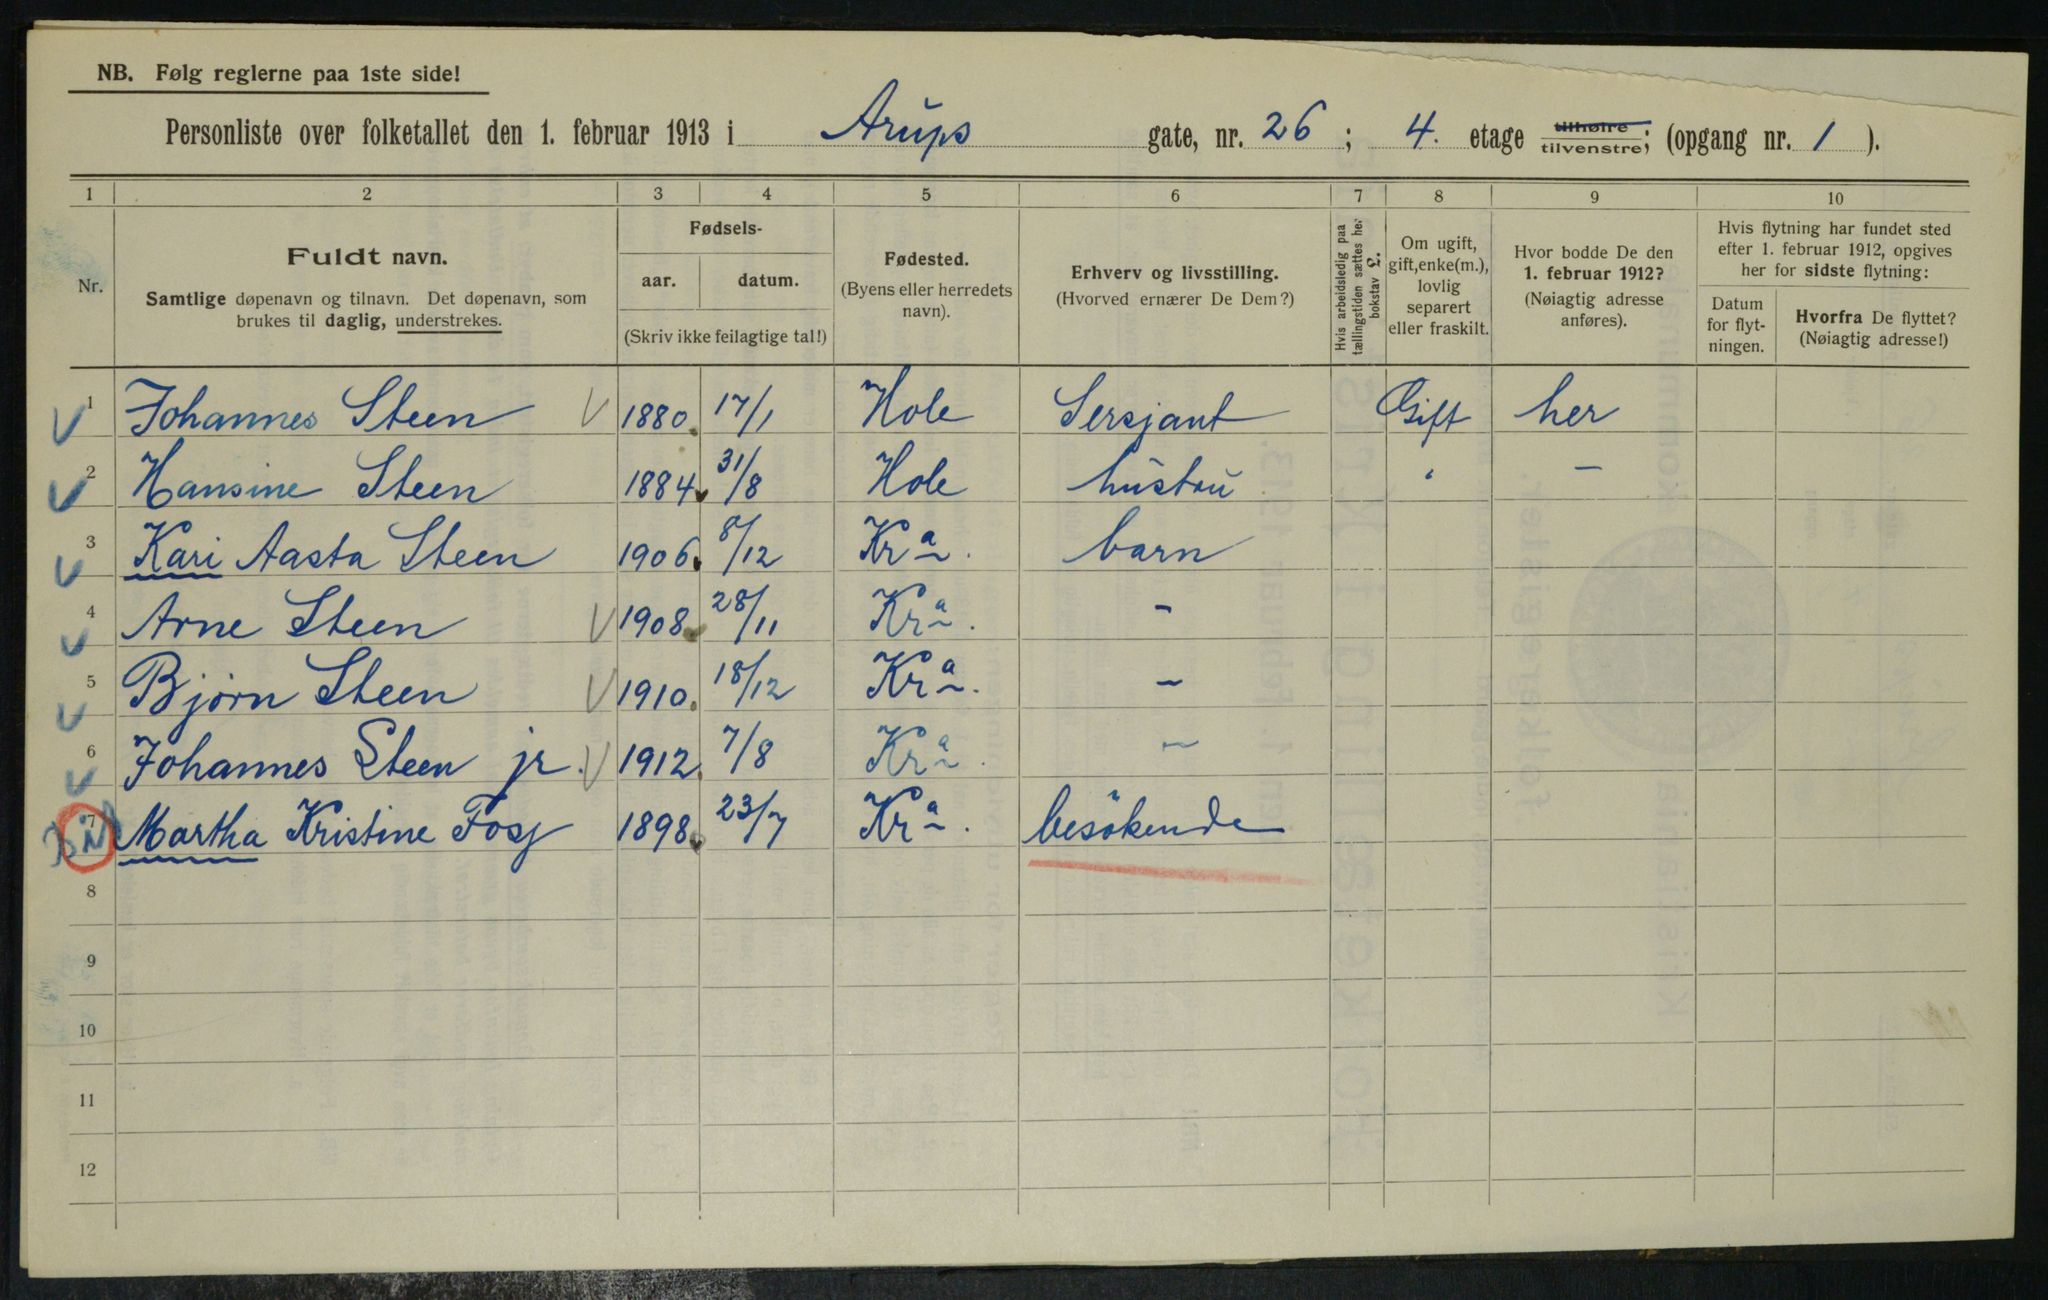 NB. Følg reglerne paa 1ste side!
Personliste over folketallet den 1. februar 1913 i Arups gate, nr. 26 ; 4. etage tilhøire tilvenstre; (opgang nr. 1 ).
1 2 3 4 5 6 7 8 9 10
Nr.
Fuldt navn.
Samtlige døpenavn og tilnavn. Det døpenavn, som
brukes til daglig, understrekes.
Fødsels-
aar. datum.
(Skriv ikke feilagtige tal!)
Fødested.
(Byens eller herredets
navn).
Erhverv og livsstilling.
(Hvorved ernærer De Dem?)
Hvis arbeidsledig paa
tællingstiden sættes her
bokstav L.
Om ugift,
gift, enke(m.),
lovlig
separert
eller fraskilt.
Hvor bodde De den
1. februar 1912?
(Nøiagtig adresse
anføres).
Hvis flytning har fundet sted
efter 1. februar 1912, opgives
her for sidste flytning:
Datum
for flyt-
ningen.
Hvorfra De flyttet?
(Nøiagtig adresse!)
1 Johannes Steen 1880. 17/1 Hole Sersjant Gift her
2 Hansine Steen 1884 31/8 Hole hustru " –
3 Kari Aasta Steen 1906. 8/12 Kra. barn
4 Arne Steen 1908 28/11 Kra. –
5 Bjørn Steen 1910. 18/12 Kra. –
6 Johannes Steen jr. 1912. 7/8 Kra. –
7 Martha Kristine Fosj 1898 23/7 Kra. besökende
8
9
10
11
12